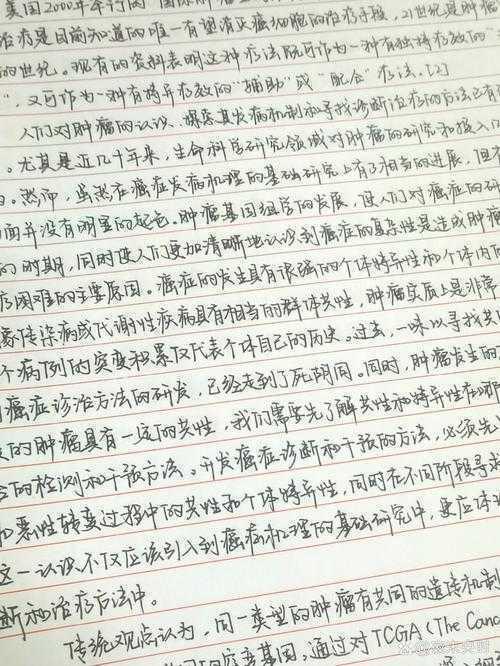 美国2000年举行的
治疗是目前知道的唯一有望消灭癌细胞的治疗手段，21世纪是肿瘤
的世纪。现有的资料表明这种疗法既可作为一种有独特疗效的"
"，又可作为一种有特异疗效的"辅助"或"配合"疗法.[2]
人们对肿瘤的认识、探索其发病机制和寻找诊断治疗的方法已有
。尤其是近几十年来，生命科学研究领域对肿瘤的研究和投入
。然而，虽然在癌症发病机理的基础研究上有了相当的进展，但
面并没有明显的起色。肿瘤基因组学的发展，使人们对癌症的研
的时期，同时使人们更加清晰地认识到癌症的复杂性是造成肿瘤
疗困难的主要原因。癌症的发生具有很强的个体特异性和个体内
像传染病或代谢性疾病具有相当的群体共性，肿瘤实质上是非常
个病例的突变积累仅代表个体自己的历史。过去，一味以寻找共
癌症诊治方法的研发，已经走到了死阴同。同时，肿瘤发生的
的肿瘤具有一定的共性，我们需要先了解共性和特异性在哪
合的检测和干预方法。开发癌症诊断和干预的方法，必须先
和恶性转变过程中的共性和个体特异性，同时在不同阶段寻找
这一认识不仅应该引入到癌症机理的基础研究中，更应体
断和治疗方法中。
传统观点认为，同一类型的肿瘤有共同的遗传机制
同的突变基因。通过对TCGA(The Canc